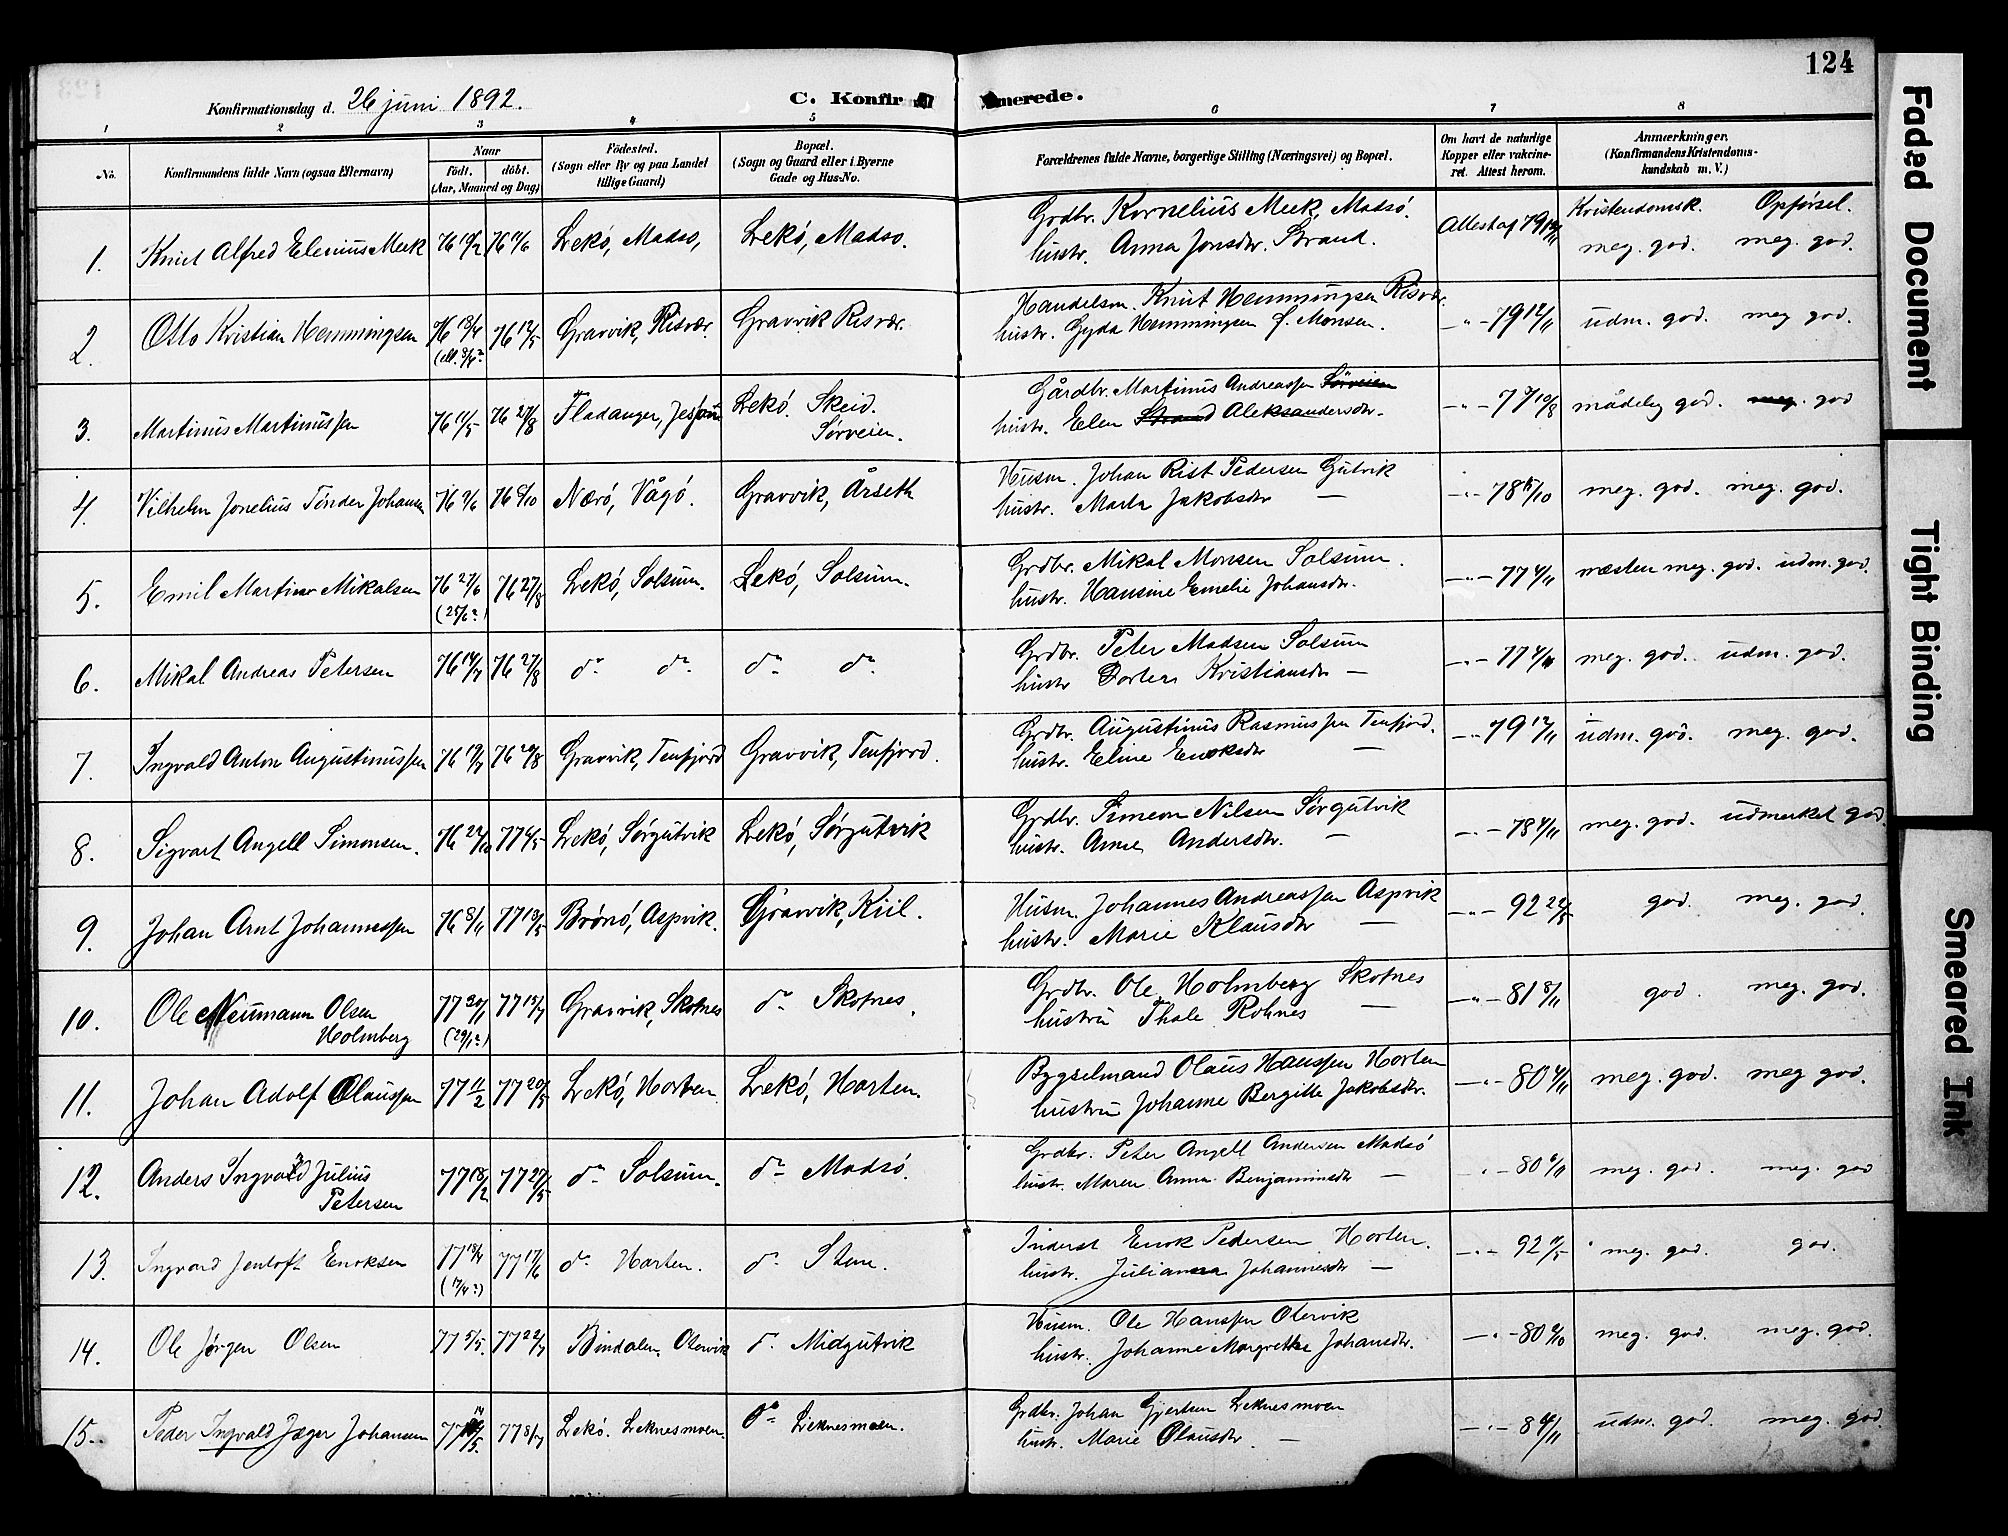 124
Konfirmationsdag d. 26 juni 1892.
C. Konfirmerede.
1 2 3 4 5 6 7 8
No. Konfirmandens fulde Navn (ogsaa Efternavn)
Naar
födt. döbt.
(Aar, Maaned og Dag)
Födested.
(Sogn eller By og paa Landet
tillige Gaard)
Bopæl.
(Sogn og Gaard eller i Byerne
Gade og Hus-No.
Forældrenes fulde Navne, borgerlige Stilling (Næringsvei) og Bopæl.
Om havt de naturlige
Kopper eller vakcine-
ret. Attest herom.
Anmærkninger.
(Konfirmandens Kristendoms-
kundskab m. V.)
Kristendomsk. Opførsel.
1. Knut Alfred Meek 76 76 Lekö, Madsö, Lekö, Madsö.
Grdbr. Kornelius Meek, Madsö.
hustr. Anna Jonsdtr. Strand.
Attest af 79 meg. god. meg. god.
2. Otto Kristian Hemmingsen 76 76 12/5 Gravvik, Risvær. Gravvik Risvær.
Handelsm. Knut Hemmingsen Risvær.
hustr. Gyda Hemmingsen f. Monsen.
-"- 79 12/11 udm. god. meg god.
3. Martinus Martinussen 76 11/5 76 27/8 Fladanger, Lekö. Skeid.
Sørveien.
Gårdbr. Martinus Andreassen Sørveien
hustr. Elen Strand Aleksandersdtr.
-"- 77 10/8 mådelig god. meg. god
4. Vilhelm Jonelius Tönder Johansen 76 76 Nærö, Vågö. Gravvik, Årseth
Husm. Johan Rist Pedersen Gutvik
hustr. Marta Jakobsdtr —
-"- 78 meg. god. meg. god.
5. Emil Martin Mikalsen 76 27/6 76 27/8 Lekö, Solsum. Lekö, Solsum.
(25/6?)
Grdbr. Mikal Monsen Solsum.
hustr. Hansine Emelie Johansdtr.
-"- 77 næsten meg. god. udm. god.
6. Mikal Andreas Petersen 76 14/7 76 27/8 do do do do
Grdbr. Peter Madsen Solsum
hustr Dortea Kristiansdtr —
-"- 77 meg. god. udm. god.
7. Ingvald Anton Augustinussen 76 76 Gravvik, Tenfjord Gravvik, Tenfjord.
Grdbr. Augustinus Rasmussen Tenfjord.
hustr. Eline Enoksdtr —
-"- 79 12/11 udm. god. meg. god.
8. Sigvart Angell Simonsen. 76 77 Lekö, Sørgutvik Lekö, Sørgutvik
Grdbr. Simeon Nilsen Sørgutvik
hustr. Anne Andersdtr. —
-"- 78 meg. god. udmerket god.
9. Johan Arnt Johannessen 76 8/11 77 13/5 Brönö, Aspvik. Gravvik, Kiil.
Husm. Johannes Andreassen Aspvik
hustr. Marie Klausdtr —
-"- 92 god. meg. god.
10. Ole Neumann Olsen
Holmberg
77 77 Gravvik, Skotnes do Skotnes.
(29/1?)
Grdbr. Ole Holmberg Skotnes
hustru Thale Rohnes —
-"- 81 8/11 god. meg. god.
11. Johan Adolf Olaussen 77 11/2 77 20/5 Lekö, Horten. Lekö, Horten.
Bygselmand Olaus Hanssen Horten
hustru Johanne Bergitte Jakobsdtr.
-"- 80 meg. god. meg god.
12. Anders Ingvald Julius
Petersen
77 18/2 77 27/5 do Solsum. do Madsö.
Grdbr. Peter Angell Andersen Madsö
hustr. Maren Anna Benjaminsdtr —
-"- 80 meg. god. meg. god
13. Ingvard Jentoft Enoksen 77 77 17/6 do Horten. do Stene.
(17/4?)
Inderst Enok Pedersen Horten.
hustr. Julianna Johannesdtr —
-"- 92 meg. god. god.
14. Ole Jørgen Olsen 77 5/5. 77 22/7 Bindalen, Olervik do Midgutvik
Husm. Ole Hanssen Olervik
hustr. Johanne Margrethe Johansdtr.
-"- 80 meg. god. meg. god.
15. Peder Ingvald Jæger Johansen 77 77 8/7 Lekö. Leknesmoen. do Leknesmoen.
Grdbr. Johan Gjertsen Leknesmoen
hustr. Marie Olausdtr. —
-"- udm. god. meg. god
Faded Document
Tight Binding
Smeared Ink